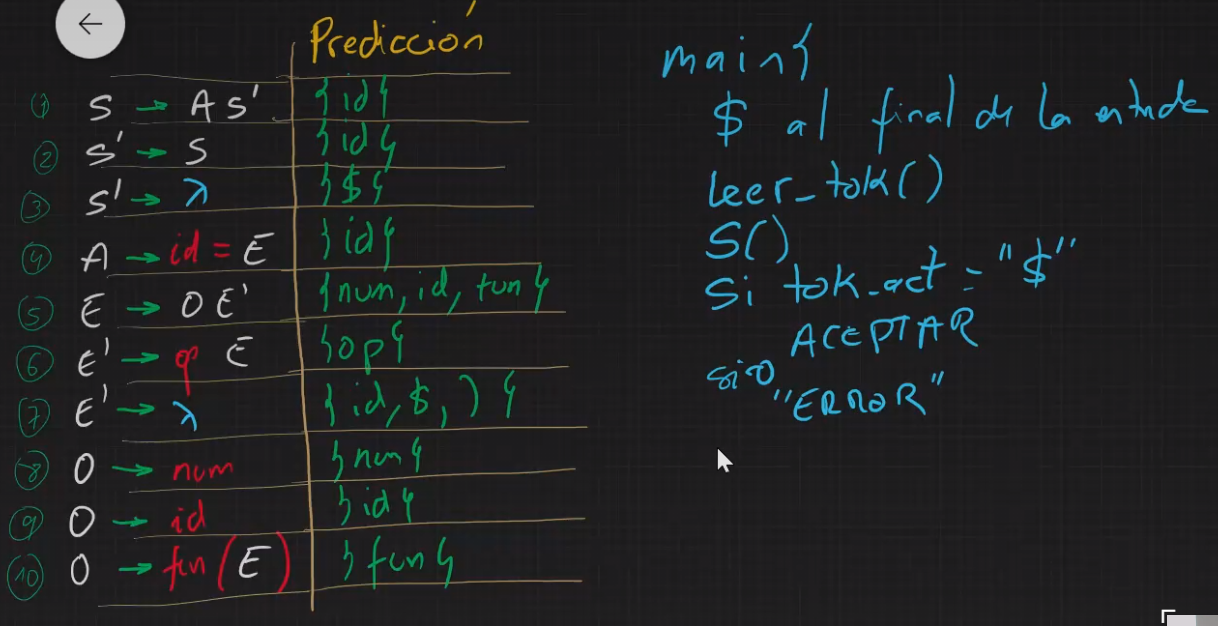 Predicción
(1) S → A S' {id}
(2) S' → S {id}
(3) S' → λ {$}
(4) A → id = E {id}
(5) E → O E' {num, id, fun}
(6) E' → op E {op}
(7) E' → λ {id, $, )}
(8) O → num {num}
(9) O → id {id}
(10) O → fun (E) {fun}
main{
$ al final de la entrada
leer_tok()
S()
Si tok_act = "$"
ACEPTAR
sino
"ERROR"